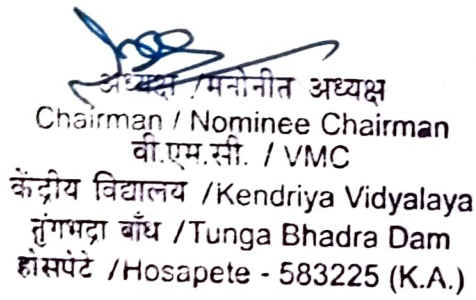 अध्यक्ष /मनोनीत अध्यक्ष
Chairman / Nominee Chairman
वी.एम.सी. / VMC
केंद्रीय विद्यालय /Kendriya Vidyalaya
तुंगभद्रा बाँध /Tunga Bhadra Dam
होसपेटे /Hosapete - 583225 (K.A.)